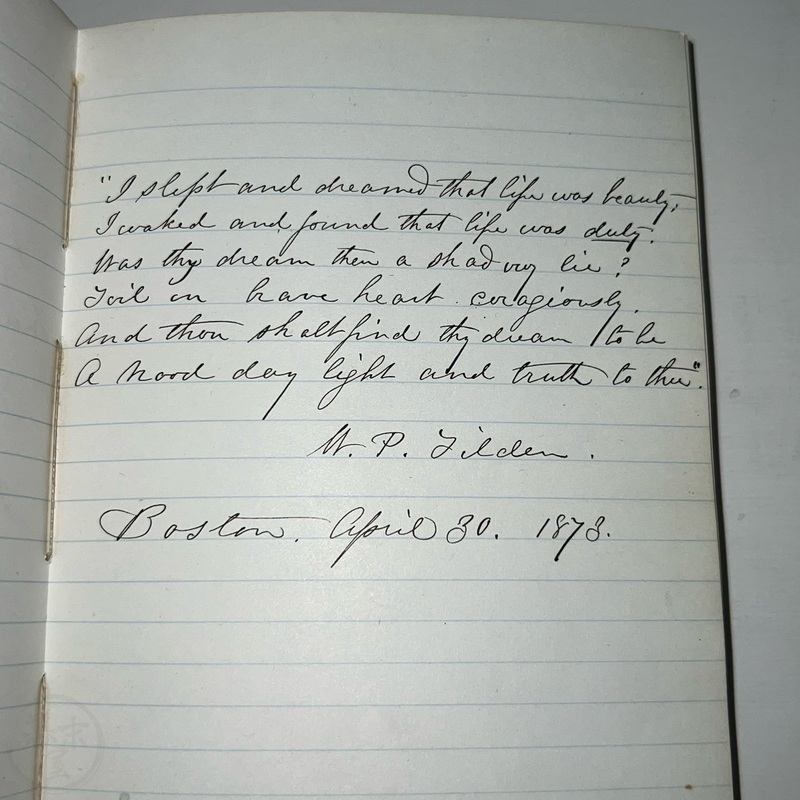 "I slept and dreamed that life was beauty;
I waked and found that life was duty.
Was thy dream then a shadowy lie?
Toil on brave heart coragiously.
And thou shalt find thy dream to be
A noon day light and truth to thee".
W. P. Tilden.
Boston. April 30. 1873.